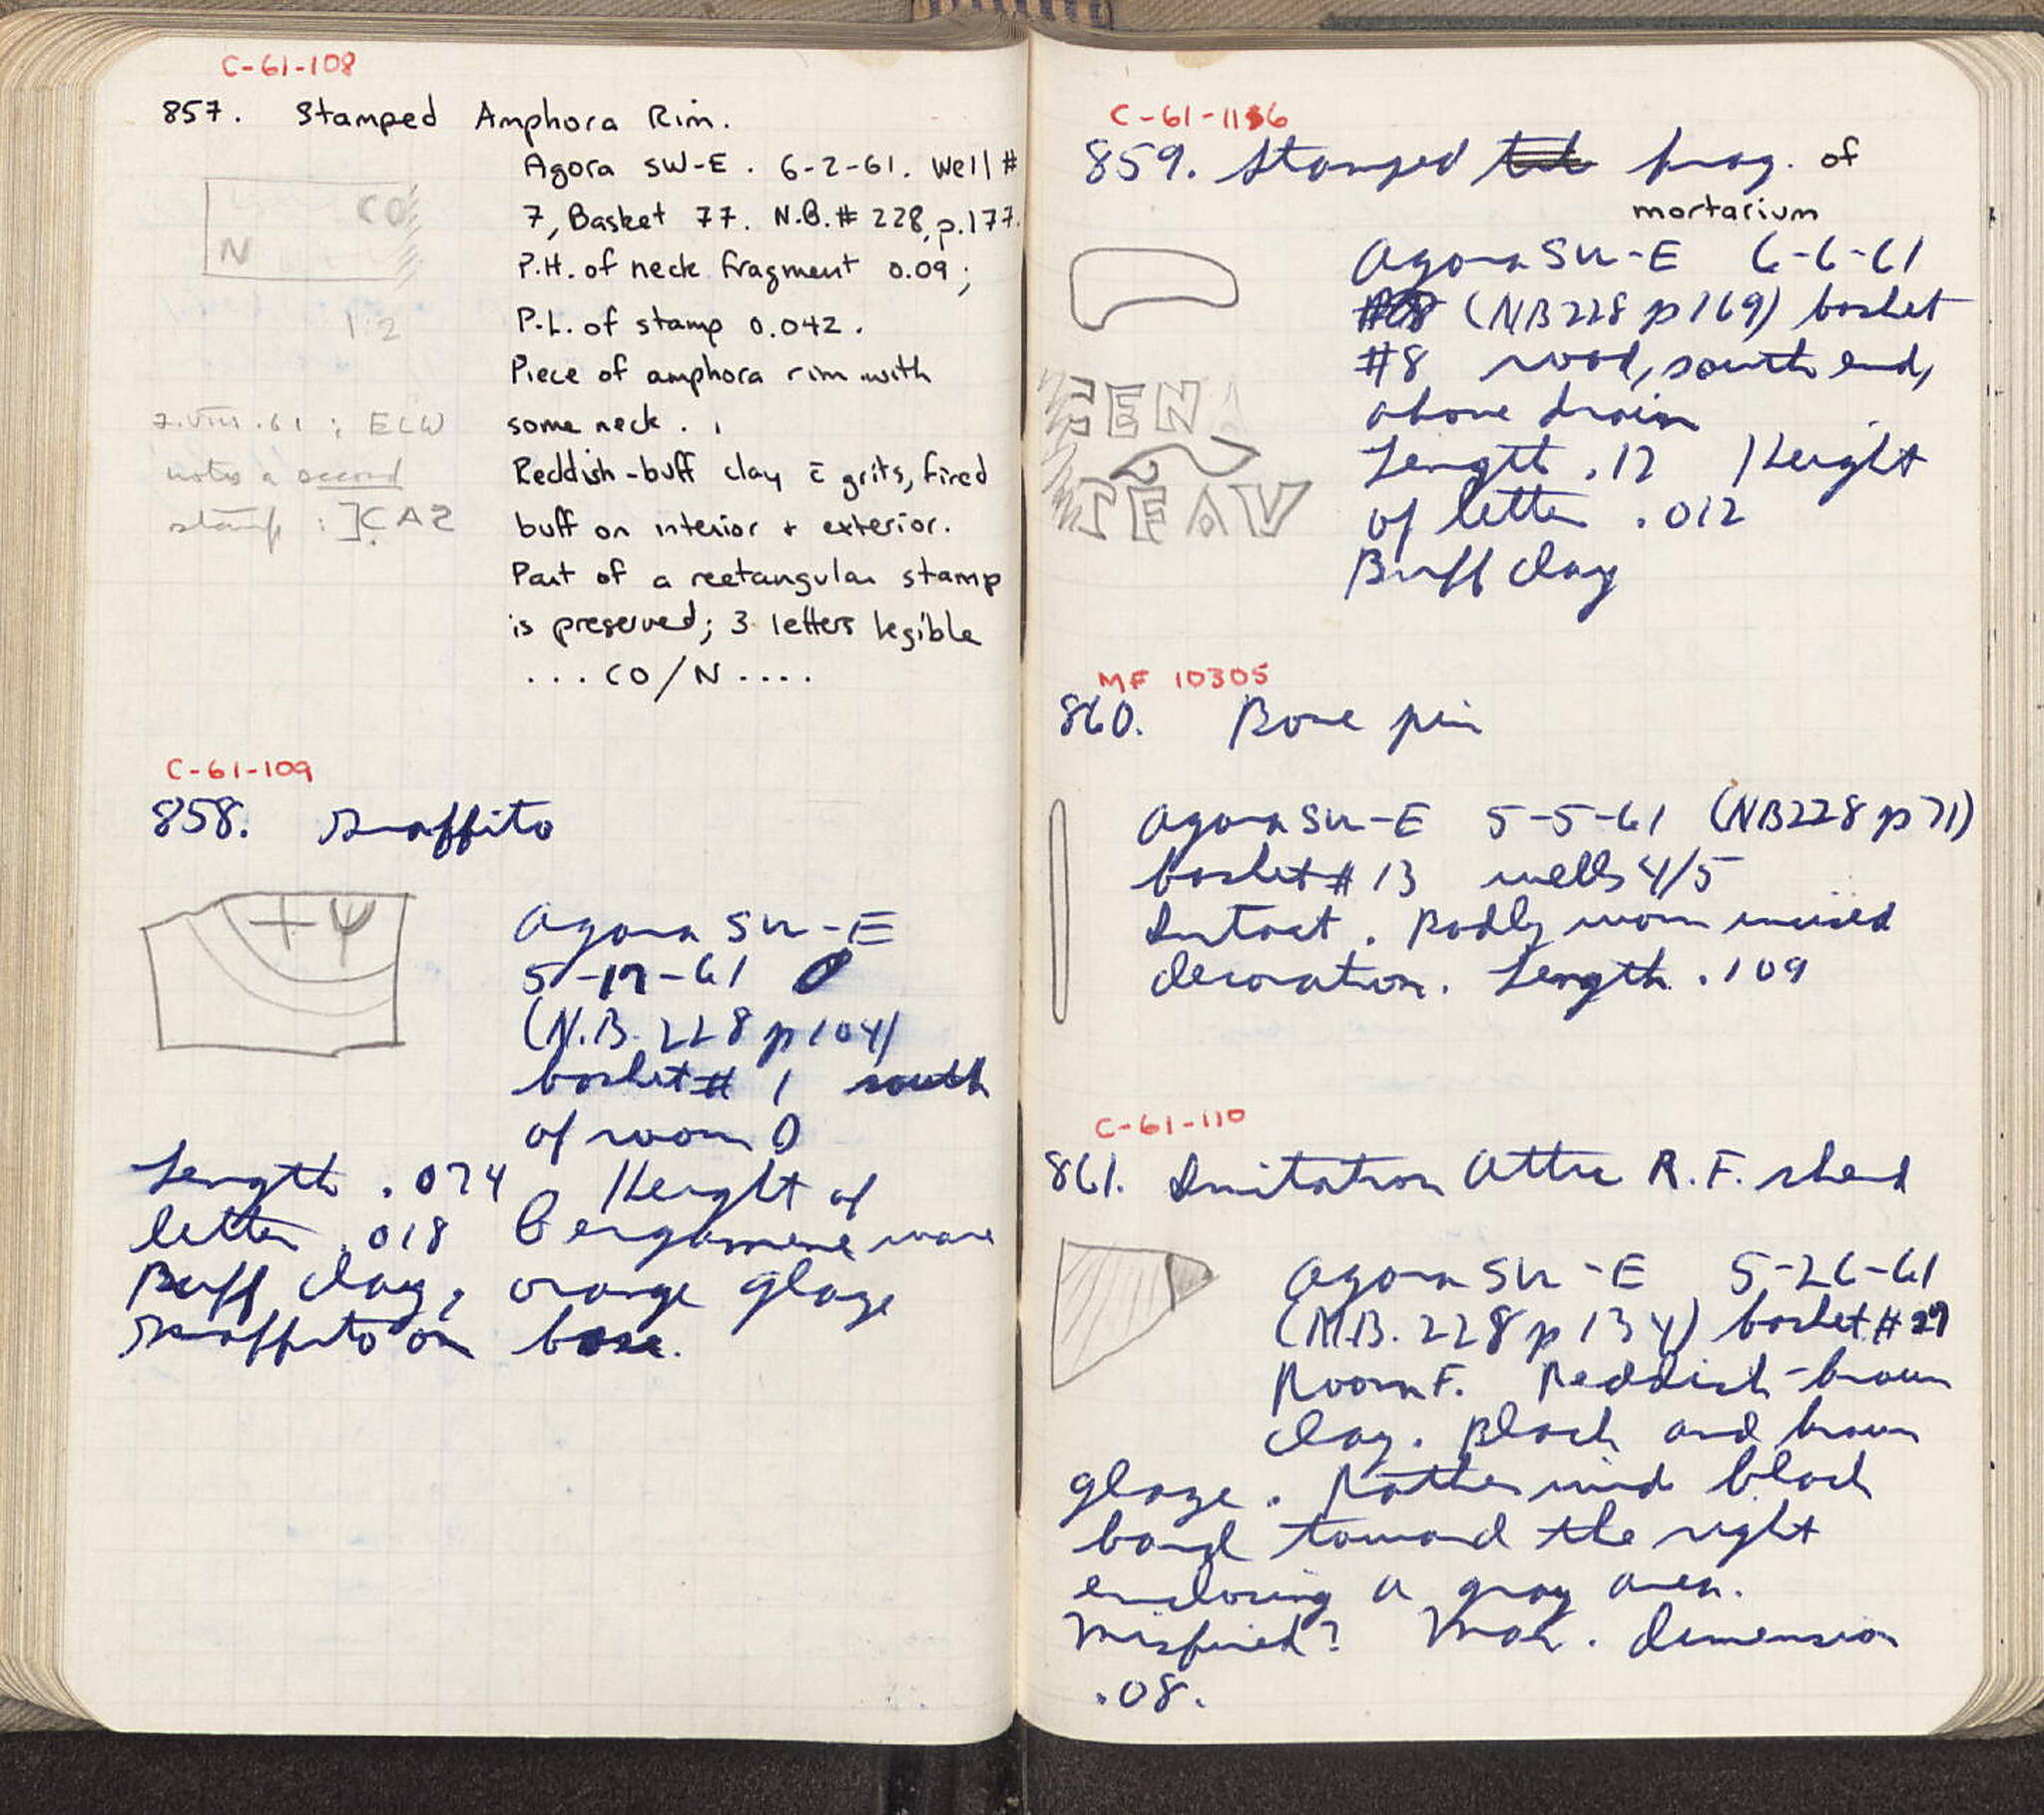 C-61-108
857. Stamped Amphora Rim.
Agora SW-E. 6-2-61. Well #
7, Basket 77. N.B.# 228, p.177.
P.H. of neck fragment 0.09;
P.L. of stamp 0.042.
Piece of amphora rim with
some neck.
Reddish-buff clay c̄ grits, fired
buff on interior + exterior.
Part of a rectangular stamp
is preserved; 3 letters legible
... CO/N ....
CO
N
1:2
7.VIII.61 ; ELW
notes a second
stamp : ]CAS
C-61-109
858. Graffito
+ψ
Agora SW-E
5-17-61
(N.B. 228 p 104)
basket # 1 south
of room D
Length .074 Height of
letter .018 Pergamene ware
Buff clay, orange glaze
Graffito on base.
C-61-1156
859. Stamped frag. of
mortarium
Agora SW-E 6-6-61
(NB228 p169) basket
#8 road, south end,
above drain
Length .12 Height
of letter .012
Buff clay
EN
TFAV
MF 10305
860. Bone pin
Agora SW-E 5-5-61 (NB228 p71)
basket # 13 wells 4/5
Intact. Badly worn incised
decoration. Length .109
C-61-110
861. Imitation Attic R.F. sherd
Agora SW-E 5-26-61
(N.B. 228 p 134) basket #
Room F. Reddish-brown
clay. Black and brown
glaze. Rather mid black
band toward the right
enclosing a gray area.
Misfired? Max. dimension
.08.